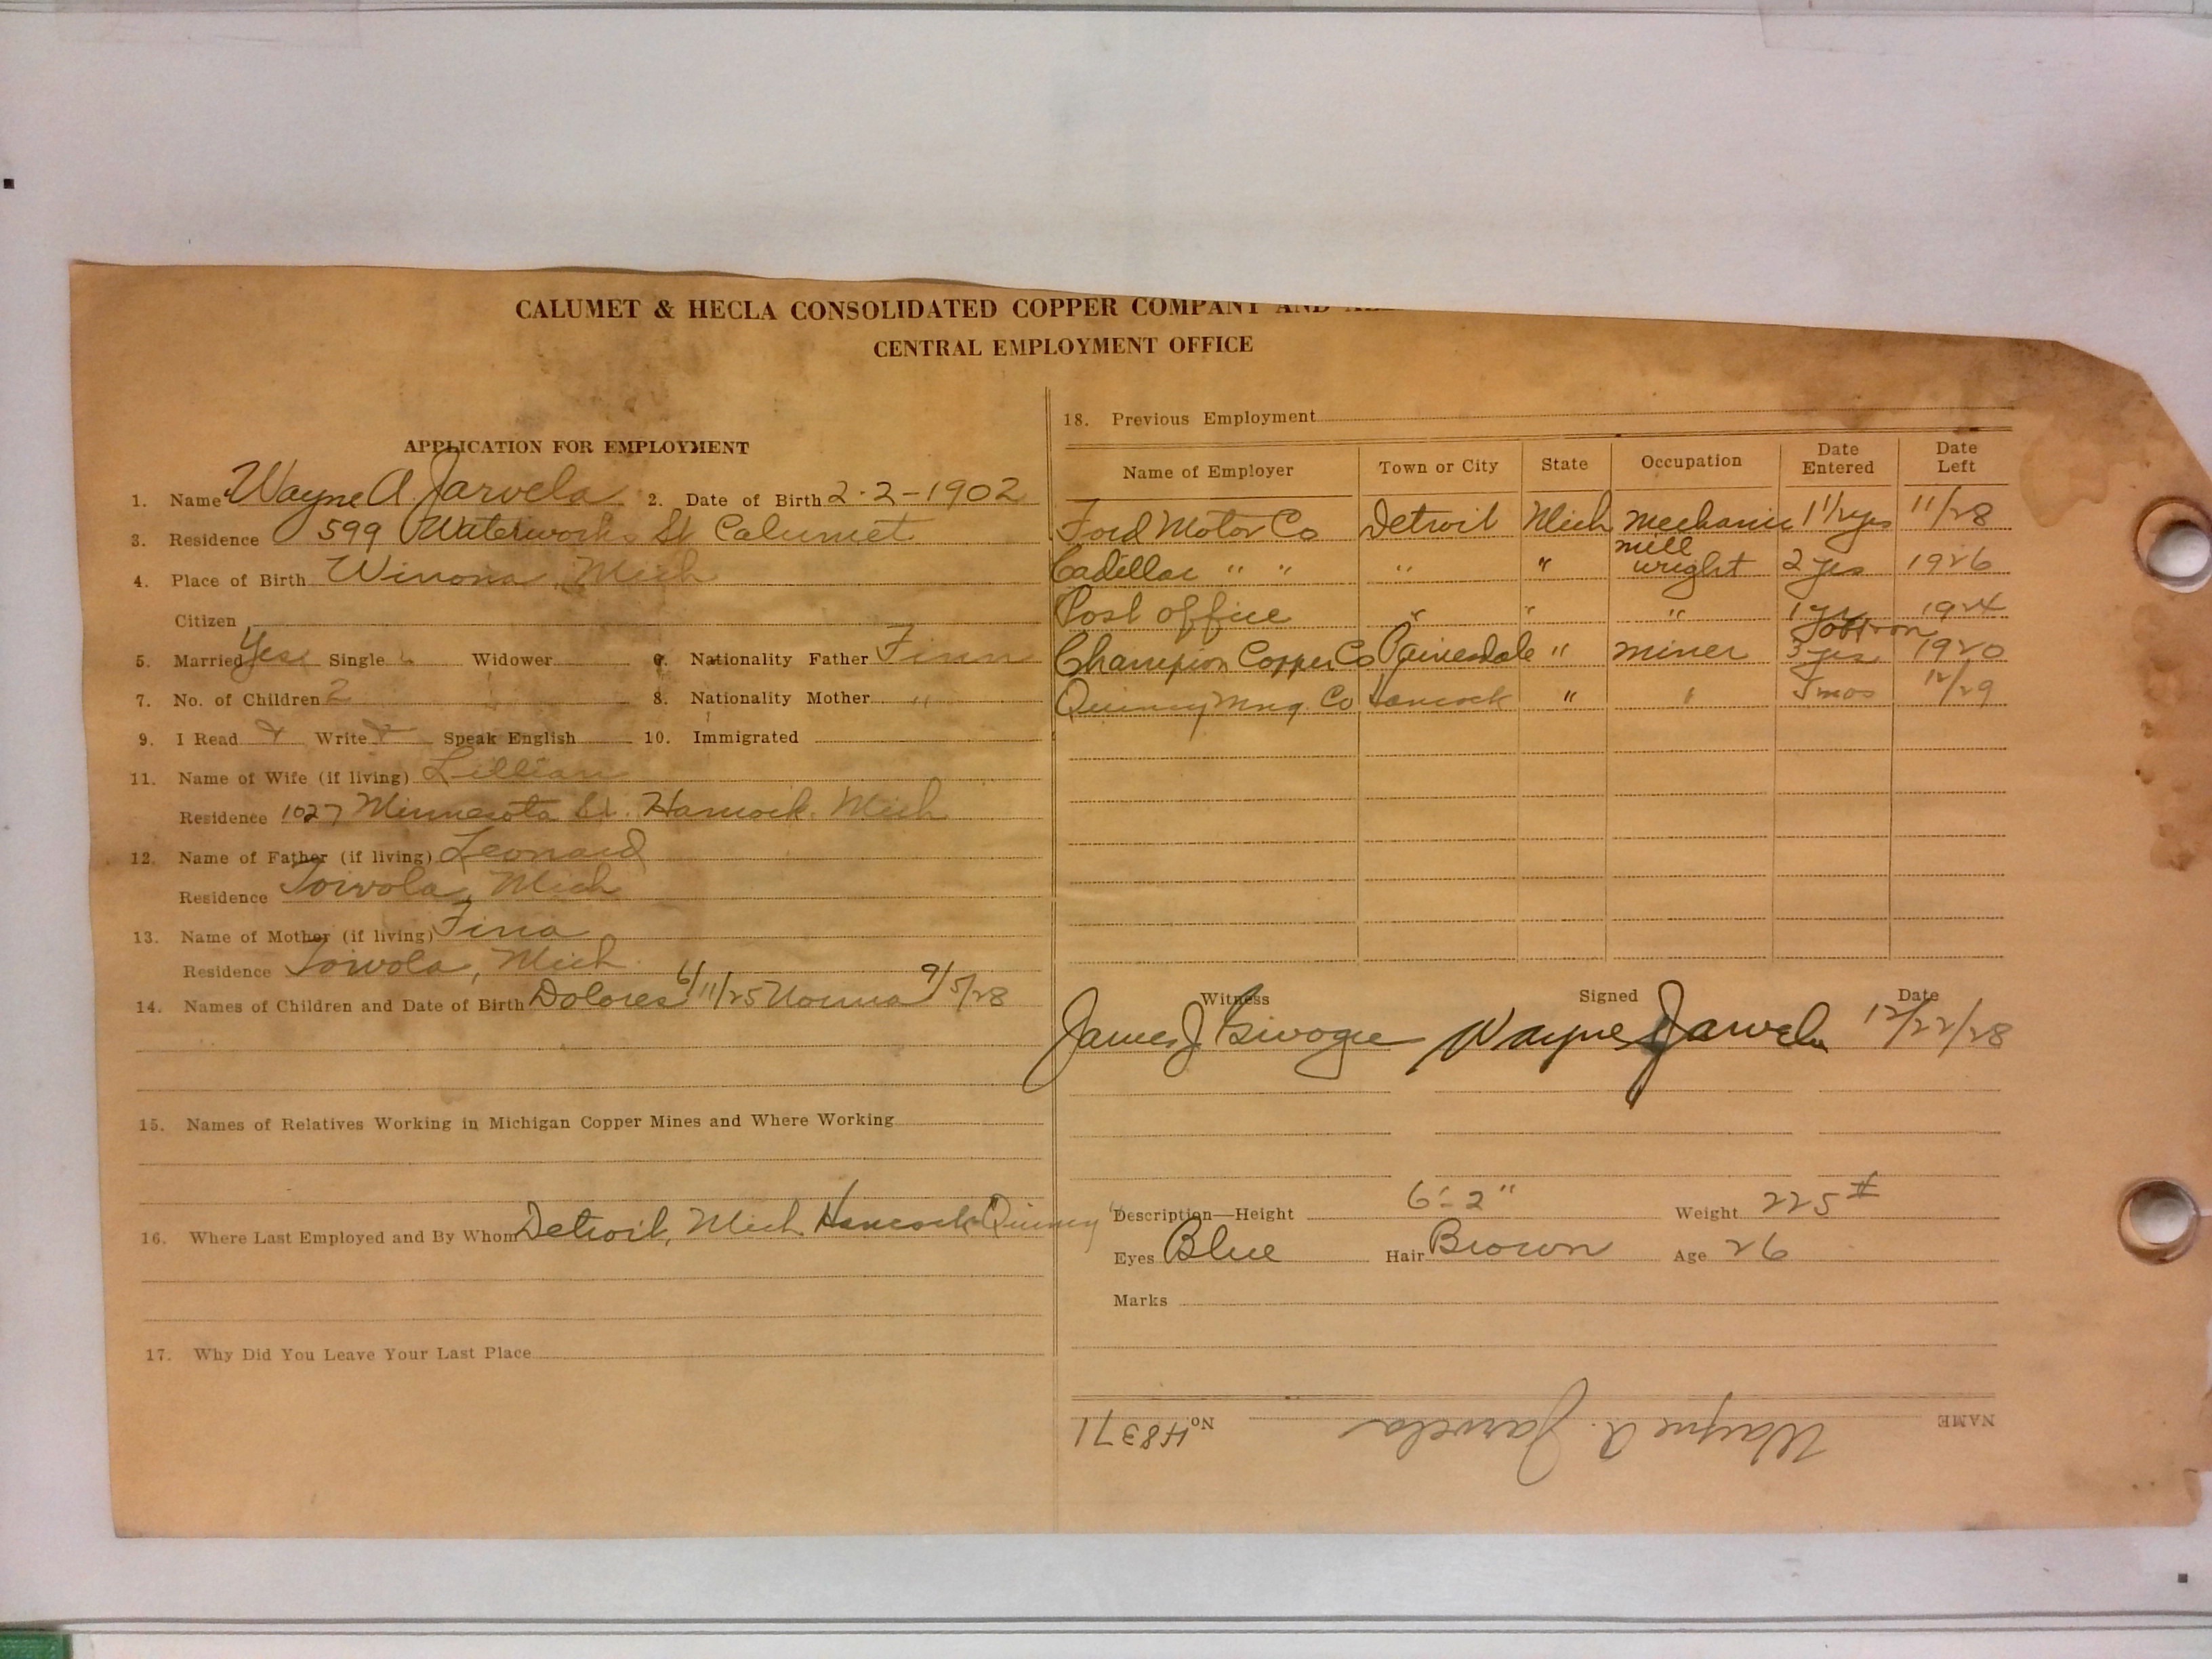 CALUMET & HECLA CONSOLIDATED COPPER COMPANY AND
CENTRAL EMPLOYMENT OFFICE
APPLICATION FOR EMPLOYMENT
1. Name Wayne A. Jarvela 2. Date of Birth 2-2-1902
3. Residence 599 Waterworks St Calumet
4. Place of Birth Winona, Mich
Citizen
5. Married Yes Single Widower 6. Nationality Father Finn
7. No. of Children 2 8. Nationality Mother "
9. I Read Write Speak English 10. Immigrated
11. Name of Wife (if living) Lillian
Residence 1027 Minnesota St. Hancock. Mich
12. Name of Father (if living) Leonard
Residence Toivola, Mich
13. Name of Mother (if living) Fina
Residence Toivola, Mich
14. Names of Children and Date of Birth Dolores 6/11/25 Norma 9/5/28
15. Names of Relatives Working in Michigan Copper Mines and Where Working
16. Where Last Employed and By Whom Detroit, Mich Hancock Quincy
17. Why Did You Leave Your Last Place
18. Previous Employment
Name of Employer Town or City State Occupation Date Entered Date Left
Ford Motor Co Detroit Mich Mechanic 1 1/2 yrs 11/28
Cadillac " " " " mill wright 2 yrs 1926
Post office " " " 1 yr 1924
Champion Copper Co Painesdale " miner 3 yrs 1920
Quincy Mng. Co Hancock " " 12/29
Witness Signed Date
James J Wayne Jarvela 12/22/28
Description—Height 6'-2" Weight 225 #
Eyes Blue Hair Brown Age 26
Marks
NAME Wayne A. Jarvela No. 48371